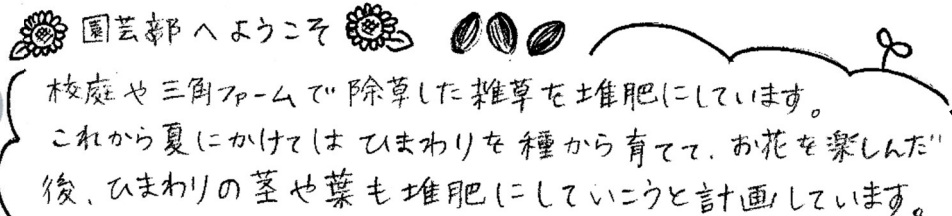 園芸部へようこそ
校庭や三角ファームで除草した雑草を堆肥にしています。
これから夏にかけてはひまわりを種から育てて、お花を楽しんだ
後、ひまわりの茎や葉も堆肥にしていこうと計画しています。